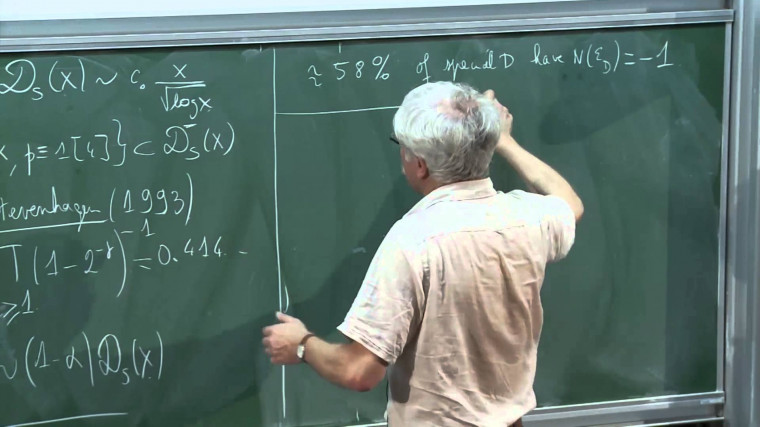 D_s(x) ~ c₀ x/√logx
x, p≡1[4]} ⊂ D_s⁻(x)
tevenhagen (1993)
T(1-2^{-r})^{-1} = 0.414 -
≥1
~(1-α)D_s(x)
≈58% of special D have N(ε_D)=-1